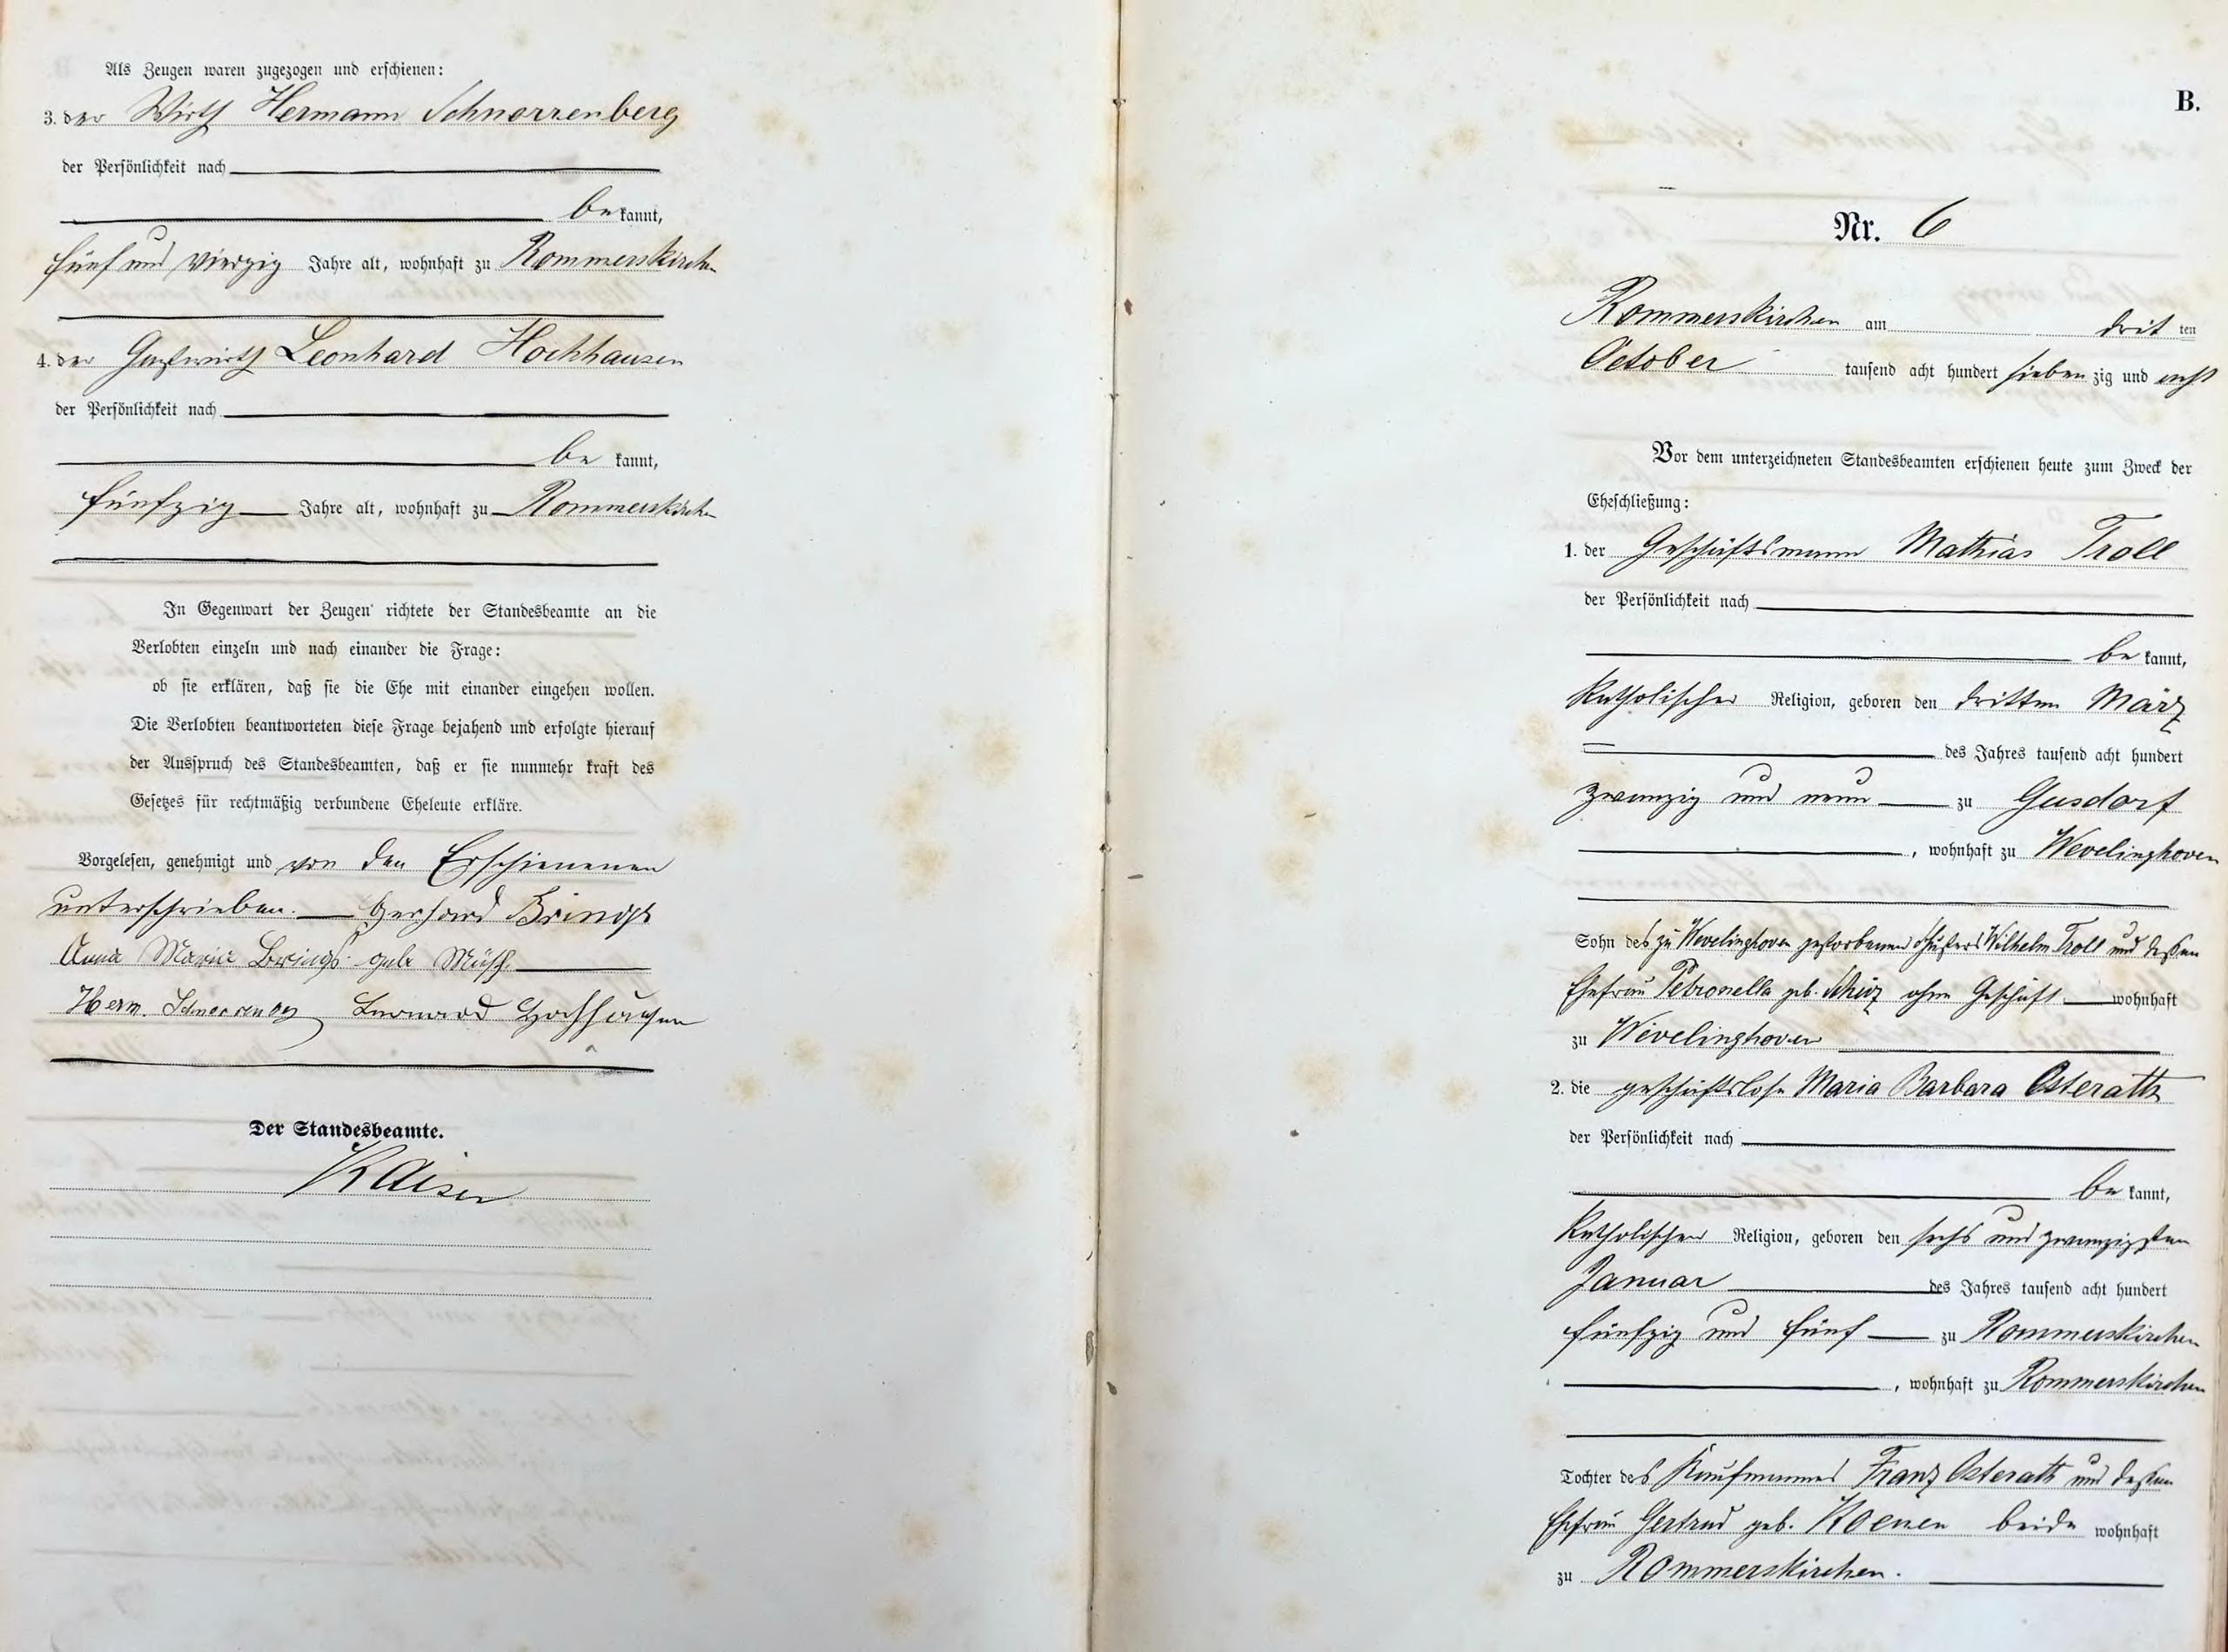 Als Zeugen waren zugezogen und erschienen:
3. der Wirth Hermann Schnorrenberg
der Persönlichkeit nach
be kannt,
fünf und vierzig Jahre alt, wohnhaft zu Rommerskirchen
4. der Gastwirth Leonhard Hochhausen
der Persönlichkeit nach
be kannt,
fünfzig Jahre alt, wohnhaft zu Rommerskirchen
In Gegenwart der Zeugen richtete der Standesbeamte an die
Verlobten einzeln und nach einander die Frage:
ob sie erklären, daß sie die Ehe mit einander eingehen wollen.
Die Verlobten beantworteten diese Frage bejahend und erfolgte hierauf
der Ausspruch des Standesbeamten, daß er sie nunmehr kraft des
Gesetzes für rechtmäßig verbundene Eheleute erkläre.
Vorgelesen, genehmigt und von den Erschienenen
unterschrieben. Gerhard Brings
Anna Maria Brings geb. Müsch.
Herm. Schnorrenberg Leonard Hochhausen
Der Standesbeamte.
Kaiser
B.
Nr. 6
Rommerskirchen am drit ten
October tausend acht hundert sieben zig und acht
Vor dem unterzeichneten Standesbeamten erschienen heute zum Zweck der
Eheschließung:
1. der Geschäftsmann Mathias Troll
der Persönlichkeit nach
be kannt,
katholischer Religion, geboren den dritten März
des Jahres tausend acht hundert
zwanzig und neun zu Gusdorf
, wohnhaft zu Wevelinghoven
Sohn des zu Wevelinghoven gestorbenen Wilhelm Troll und dessen
Ehefrau Petronella geb. ohne Geschäft wohnhaft
zu Wevelinghoven
2. die geschäftslose Maria Barbara Osterath
der Persönlichkeit nach
be kannt,
katholischer Religion, geboren den sechs und zwanzigsten
Januar des Jahres tausend acht hundert
fünfzig und fünf zu Rommerskirchen
, wohnhaft zu Rommerskirchen
Tochter des Kaufmannes Franz Osterath und dessen
Ehefrau Gertrud geb. Koenen beide wohnhaft
zu Rommerskirchen.